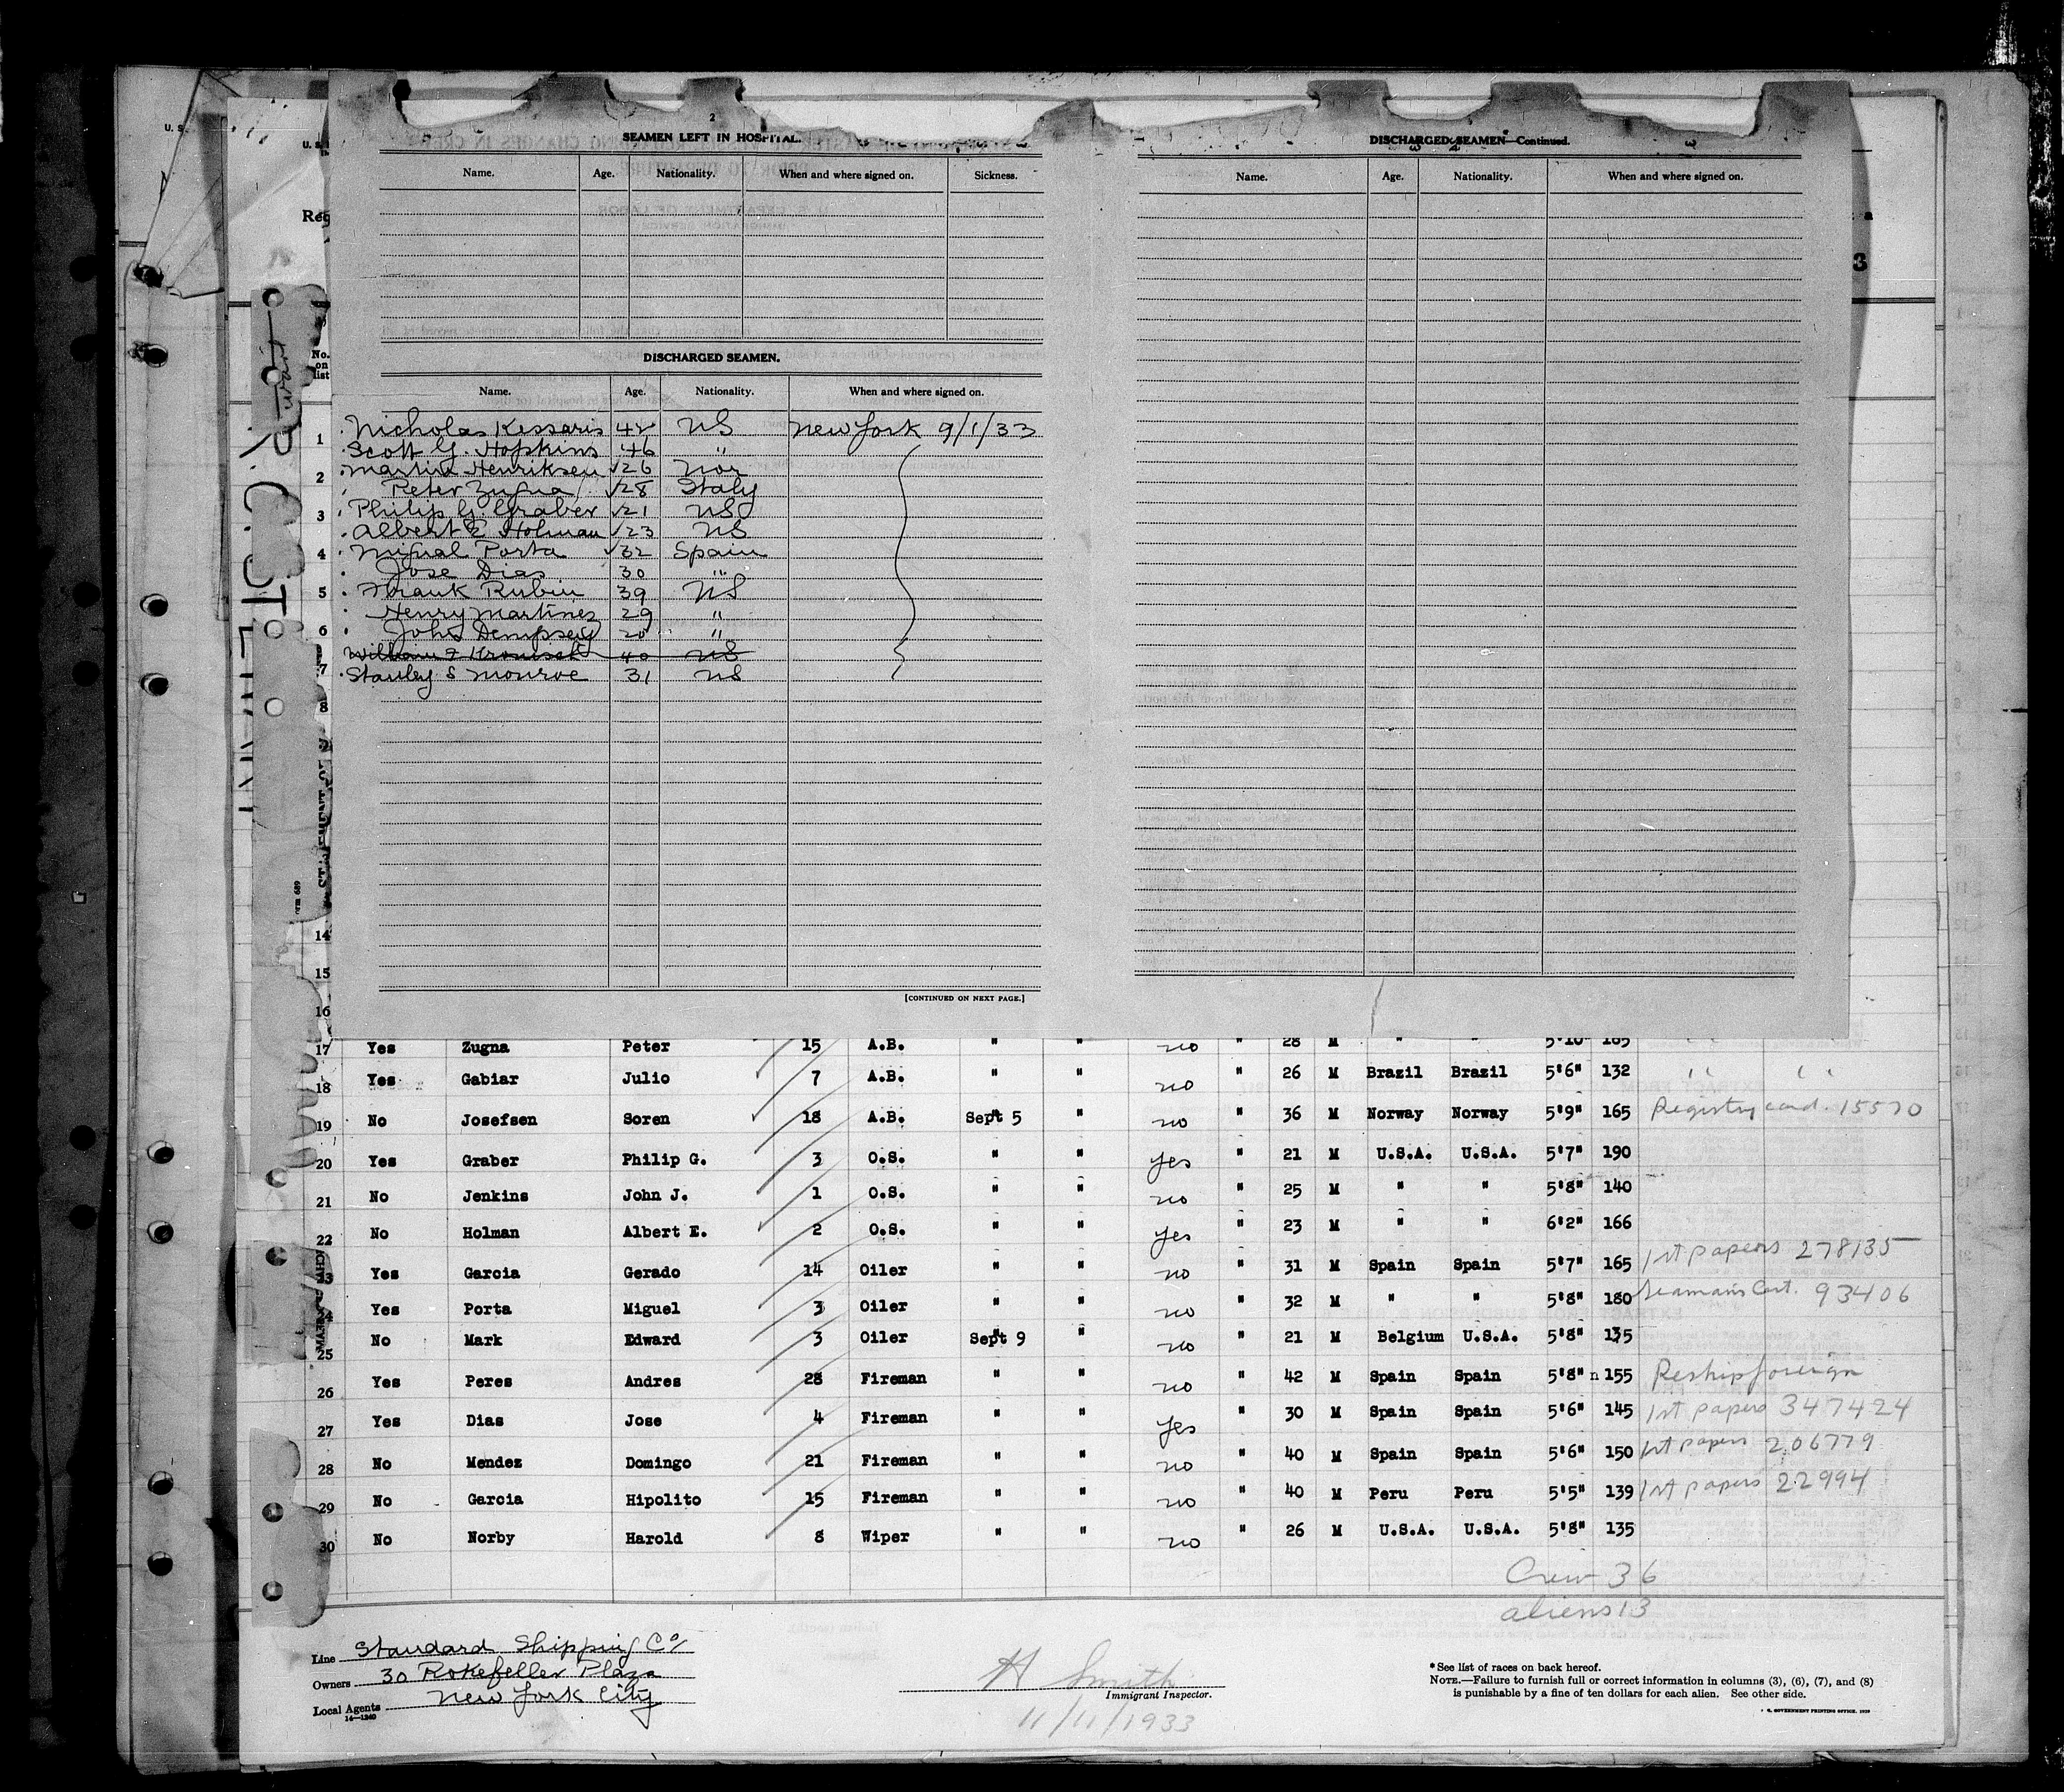 2
SEAMEN LEFT IN HOSPITAL.
Name. Age. Nationality. When and where signed on. Sickness.
DISCHARGED SEAMEN.
Name. Age. Nationality. When and where signed on.
Nicholas Kessaris 42 US New York 9/1/33
Scott G. Hopkins 46 "
Martin Henriksen √26 Nor
Peter Zugna √28 Italy
Philip G. Graber √21 US
Albert E Holman √23 US
Miguel Porta √32 Spain
Jose Dias 30 "
Frank Rubin 39 US
Henry Martinez 29 "
John Dempsey 20 "
William F 40 US
Stanley S Monroe 31 US
[CONTINUED ON NEXT PAGE.]
DISCHARGED SEAMEN—Continued.
Name. Age. Nationality. When and where signed on.
U. S.
No. on list
1
2
3
4
5
6
7
8
14
15
16
17 Yes Zugna Peter 15 A.B. " " no " 28 M " " 5'10" 165 " "
18 Yes Gabiar Julio 7 A.B. " " no " 26 M Brazil Brazil 5'6" 132 " "
19 No Josefsen Soren 18 A.B. Sept 5 " no " 36 M Norway Norway 5'9" 165 Registry card. 15570
20 Yes Graber Philip G. 3 O.S. " " yes " 21 M U.S.A. U.S.A. 5'7" 190
21 No Jenkins John J. 1 O.S. " " no " 25 M " " 5'8" 140
22 No Holman Albert E. 2 O.S. " " yes " 23 M " " 6'2" 166
23 Yes Garcia Gerado 14 Oiler " " no " 31 M Spain Spain 5'7" 165 1st papers 278135
4 Yes Porta Miguel 3 Oiler " " no " 32 M " " 5'8" 180 Seamans Cert. 93406
25 No Mark Edward 3 Oiler Sept 9 " no " 21 M Belgium U.S.A. 5'8" 135
26 Yes Peres Andres 28 Fireman " " no " 42 M Spain Spain 5'8" n 155 Reship foreign
27 Yes Dias Jose 4 Fireman " " yes " 30 M Spain Spain 5'6" 145 1st papers 347424
28 No Mendez Domingo 21 Fireman " " no " 40 M Spain Spain 5'6" 150 1st papers 206779
29 No Garcia Hipolito 15 Fireman " " no " 40 M Peru Peru 5'5" 139 1st papers 22994
30 No Norby Harold 8 Wiper " " no " 26 M U.S.A. U.S.A. 5'8" 135
Crew 36
aliens 13
Line Standard Shipping Co/
Owners 30 Rokefeller Plaza
Local Agents New York City
14—1240
H Smith
Immigrant Inspector.
11/11/1933
*See list of races on back hereof.
NOTE.—Failure to furnish full or correct information in columns (3), (6), (7), and (8)
is punishable by a fine of ten dollars for each alien. See other side.
GOVERNMENT PRINTING OFFICE. 1929